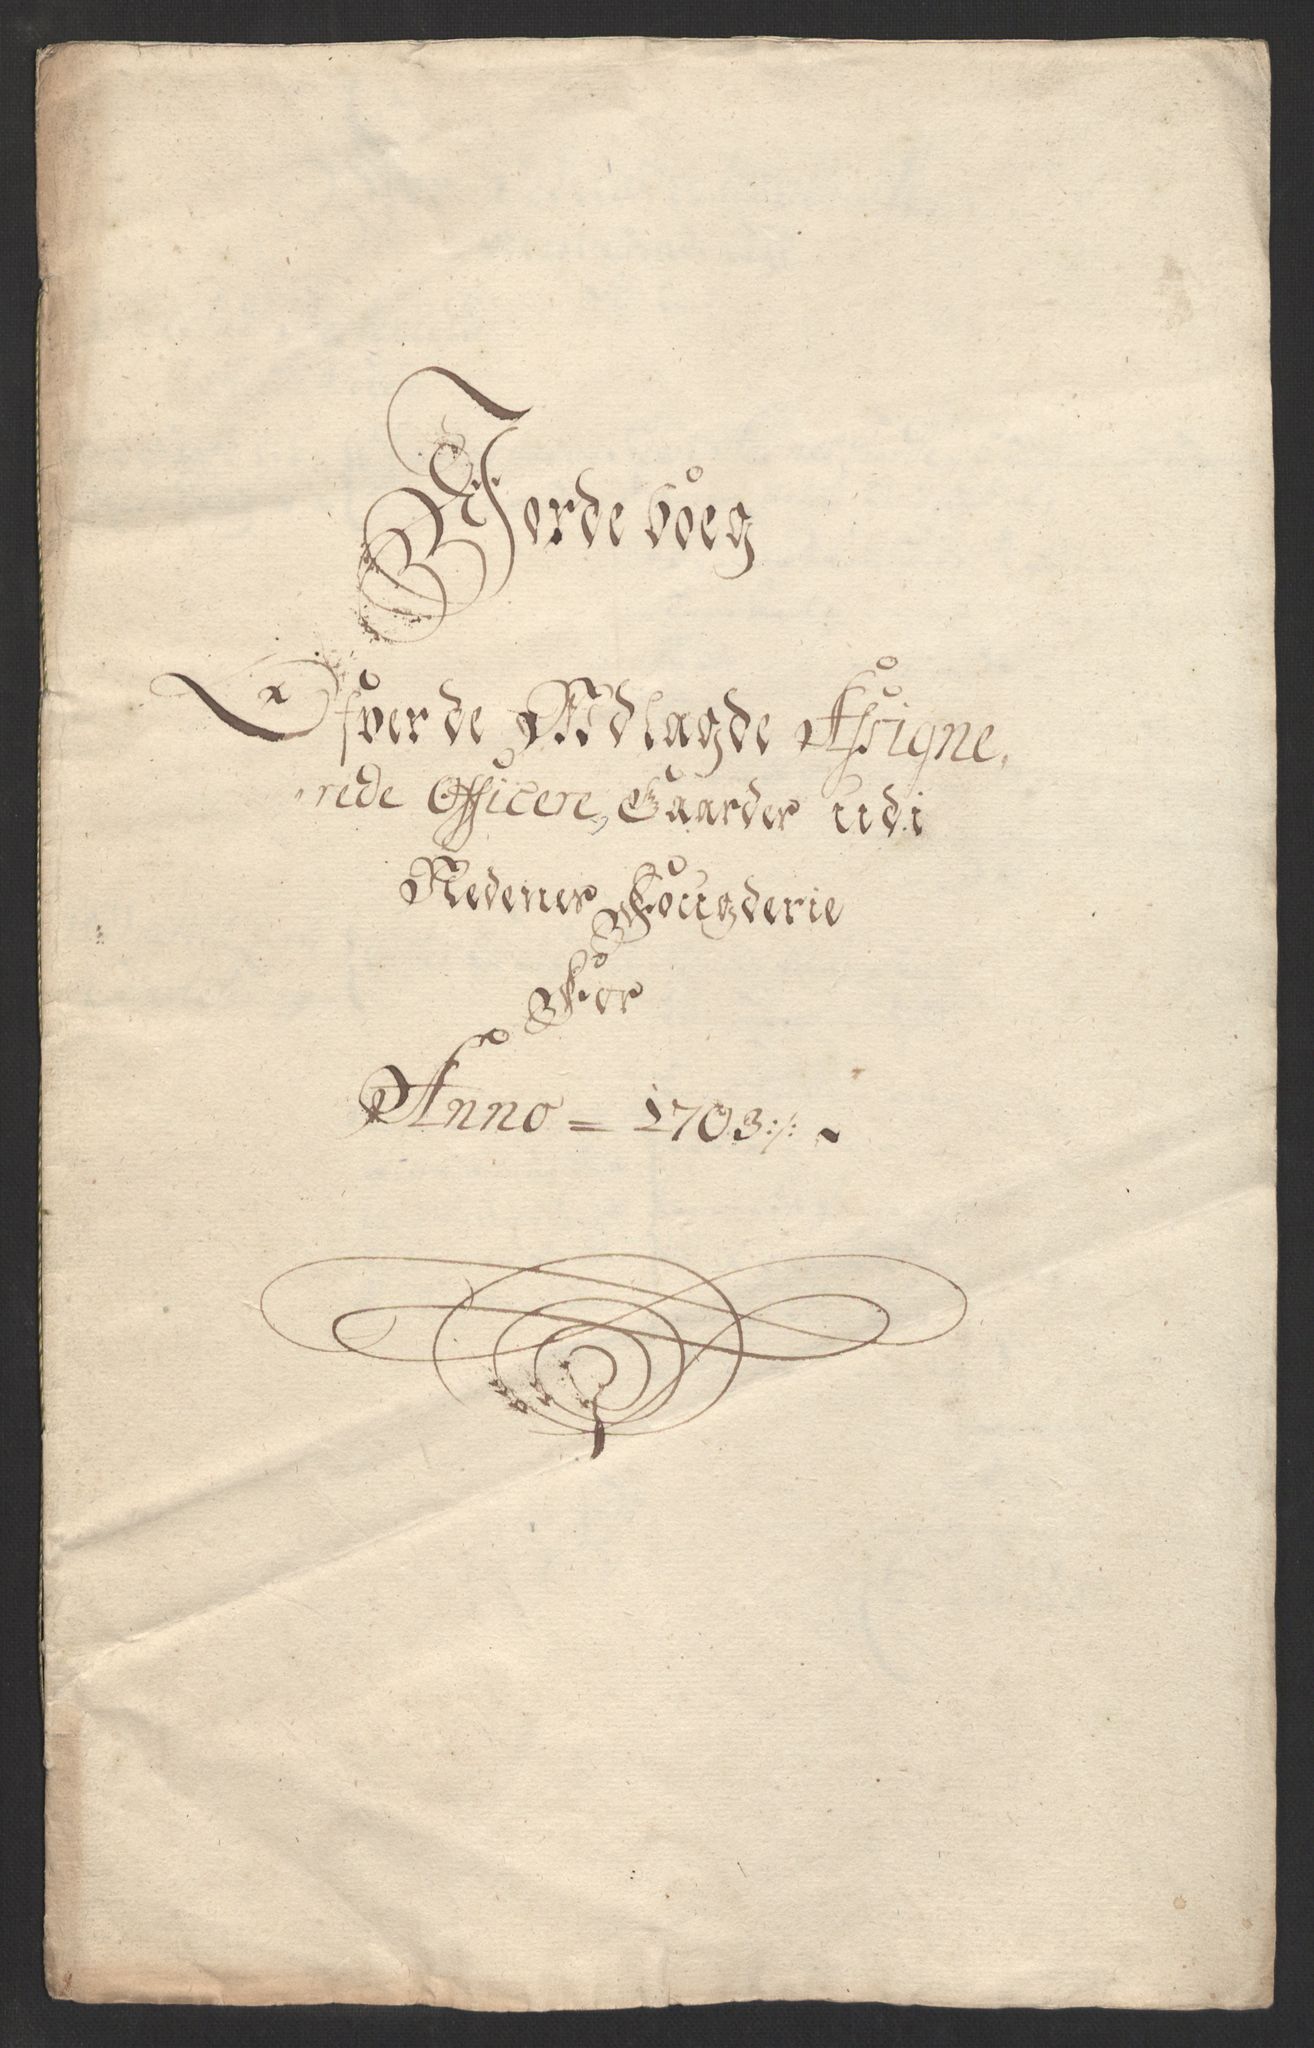 Jorde boeg
Ofver de Udlagde Assigne,
rede Officere, Gaarder udi
Nedenes Fougderie
For
Anno = 1703:/: